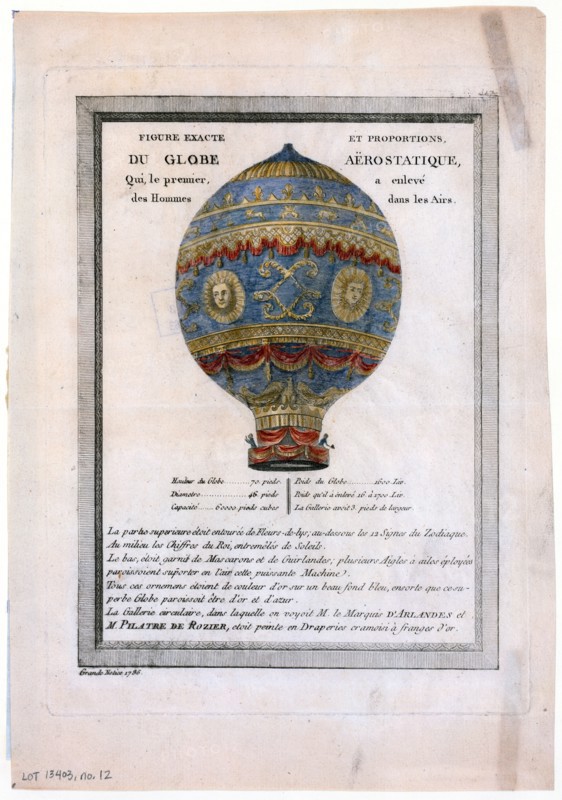 FIGURE EXACTE ET PROPORTIONS,
DU GLOBE AËROSTATIQUE,
Qui, le premier, a enlevé
des Hommes dans les Airs.
Hauteur du Globe..........70 pieds. Poids du Globe..........1600 Liv.
Diametre..........46 pieds Poids qu'il à enlevé 16 à 1700 Liv.
Capacité..........60000 pieds cubes La Gallerie avoit 3 pieds de largeur
La partie superieure étoit entourés de Fleurs-de-lys, au-dessous les 12 Signes du Zodiaque.
Au milieu les Chiffres du Roi, entremêlés de Soleils.
Le bas, étoit garni de Mascarons et de Guirlandes; plusieurs Aigles à ailes éployées
paroissoient supôrter en l'air cette puissante Machine.
Tous ces ornemens étoient de couleur d'or sur un beau fond bleu, ensorte que ce su-
perbe Globe paroissoit être d'or et d'azur.
La Gallerie circulaire, dans laquelle on voyoit M. le Marquis D'ARLANDES et
M. PILATRE DE ROZIER, etoit peinte en Draperies cramoisi à franges d'or.
1786.
LOT 13403, no. 12